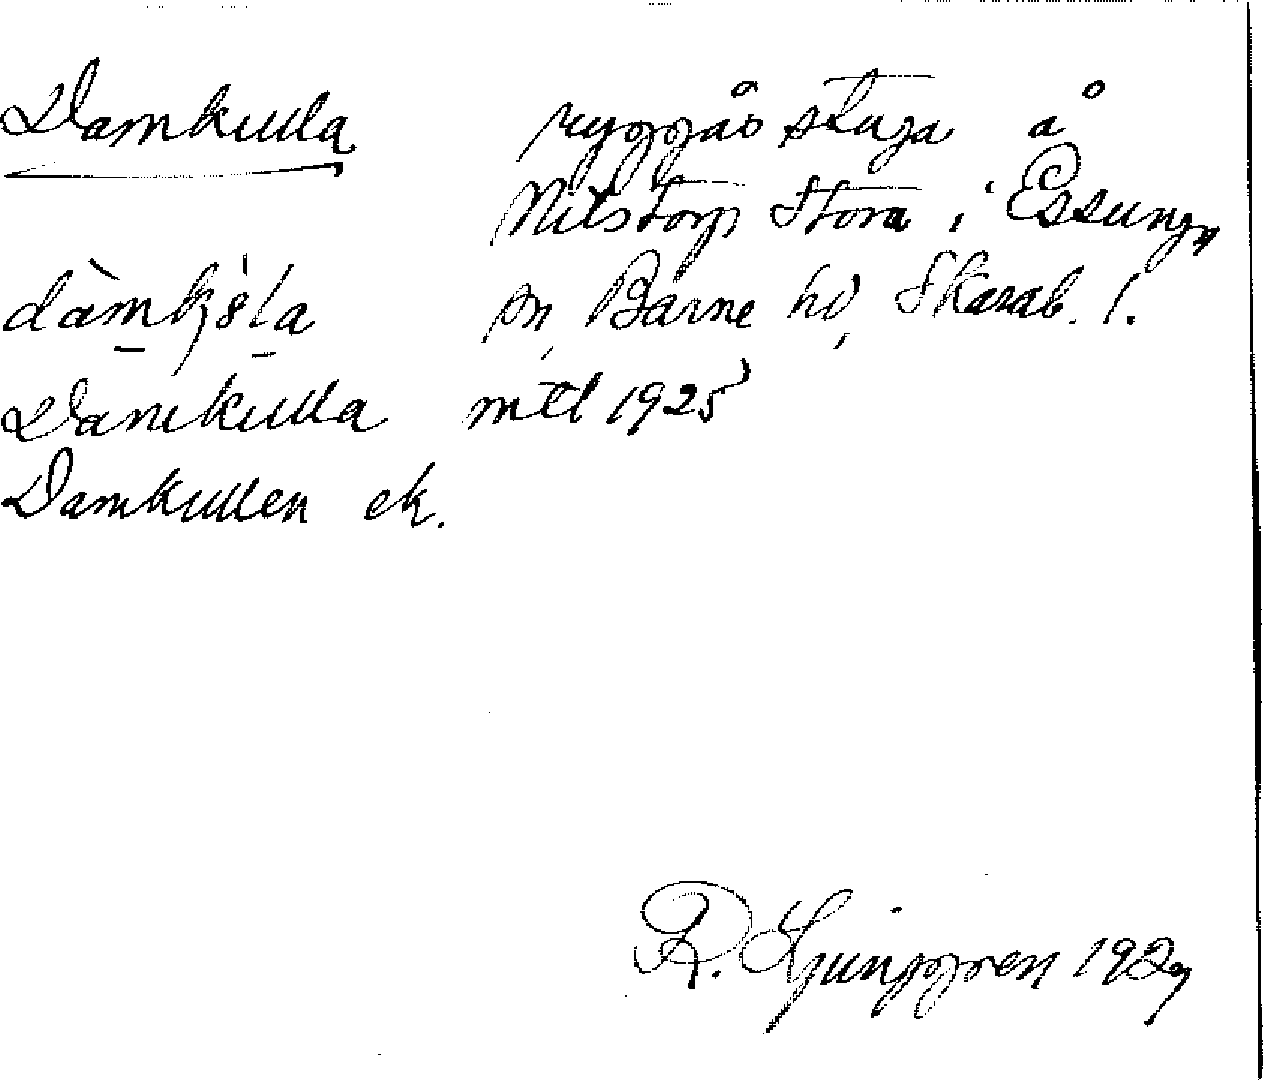 Damkulla ryggåsstuga å
Nilstorp Stora i Essunga
sn, Barne hd, Skarab. l.
Damkulla mtl 1925
Damkullen ek.
R. Ljunggren 1929